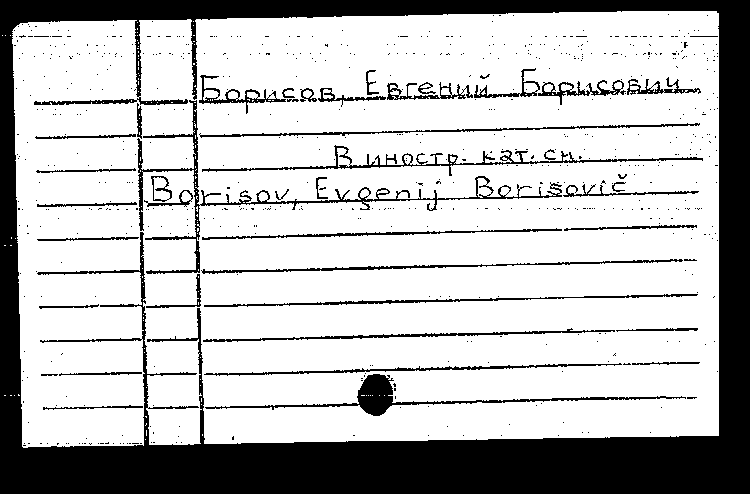 Борисов, Евгений Борисович
В иностр. кат. см.
Borisov, Evgenij Borisovič